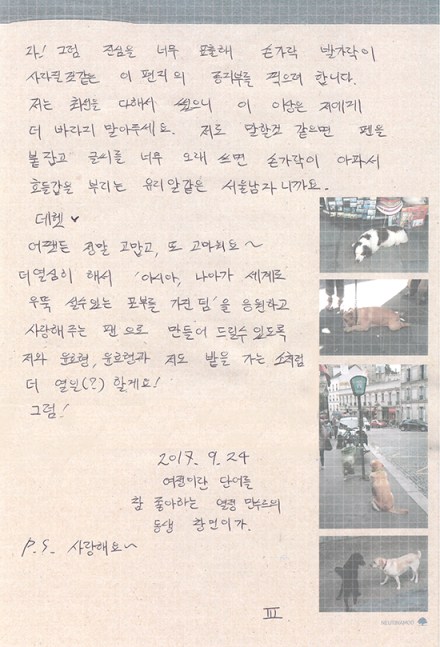 자! 그럼 진심을 너무 표출해 손가락 발가락이
사라질것같은 이 편지의 종지부를 찍으려 합니다.
저는 최선을 다해서 썼으니 이 이상은 저에게
더 바라지 말아주세요. 저도 말할것 같으면 펜을
붙잡고 글씨를 너무 오래 쓰면 손가락이 아파서
호들갑을 부리는 유리알같은 서울남자니까요.
데헷 ♥
어쨌든 정말 고맙고, 또 고마워요~
더 열심히 해서 '아시아, 나아가 세계로
우뚝 설수있는 포부를 가진 팀'을 응원하고
사랑해주는 팬으로 만들어 드릴수 있도록
저와 형, 저도 밭을 가는 소처럼
더 열일(?) 할게요!
그럼!
2017. 9. 24
이란 단어를
참 좋아하는 열정
동생 이가.
P.S. 사랑해요~
III